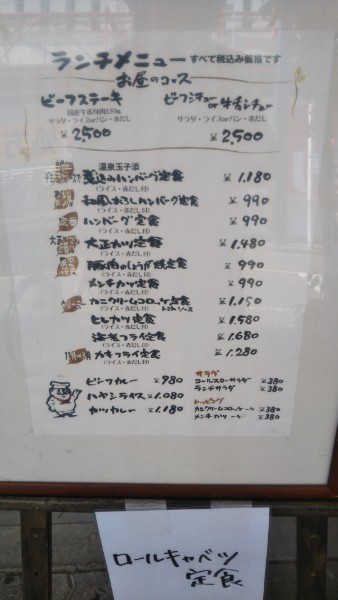 ランチメニュー すべて税込み価格です
お昼のコース
ビーフステーキ
国産牛赤身肉150g
サラダ・ライスorパン・赤だし
¥2,500
ビーフシチューor牛タンシチュー
サラダ・ライスorパン・赤だし
¥2,500
温泉玉子添
煮込みハンバーグ定食 ¥1,180
(ライス・赤だし付)
和風おろしハンバーグ定食 ¥990
(ライス・赤だし付)
ハンバーグ定食 ¥990
(ライス・赤だし付)
大正カツ定食 ¥1,480
(ライス・赤だし付)
豚肉のしょうが焼定食 ¥990
(ライス・赤だし付)
メンチカツ定食 ¥990
(ライス・赤だし付)
カニクリームコロッケ定食 ¥1,150
(ライス・赤だし付) トマトソース
ヒレカツ定食 ¥1,580
(ライス・赤だし付)
海老フライ定食 ¥1,680
(ライス・赤だし付)
カキフライ定食 ¥1,280
(ライス・赤だし付)
ビーフカレー ¥980
ハヤシライス ¥1,080
カツカレー ¥1,180
サラダ
コールスローサラダ ¥380
ランチサラダ ¥380
トッピング
カニクリームコロッケ ¥380
メンチカツ ¥380
ロールキャベツ
定食